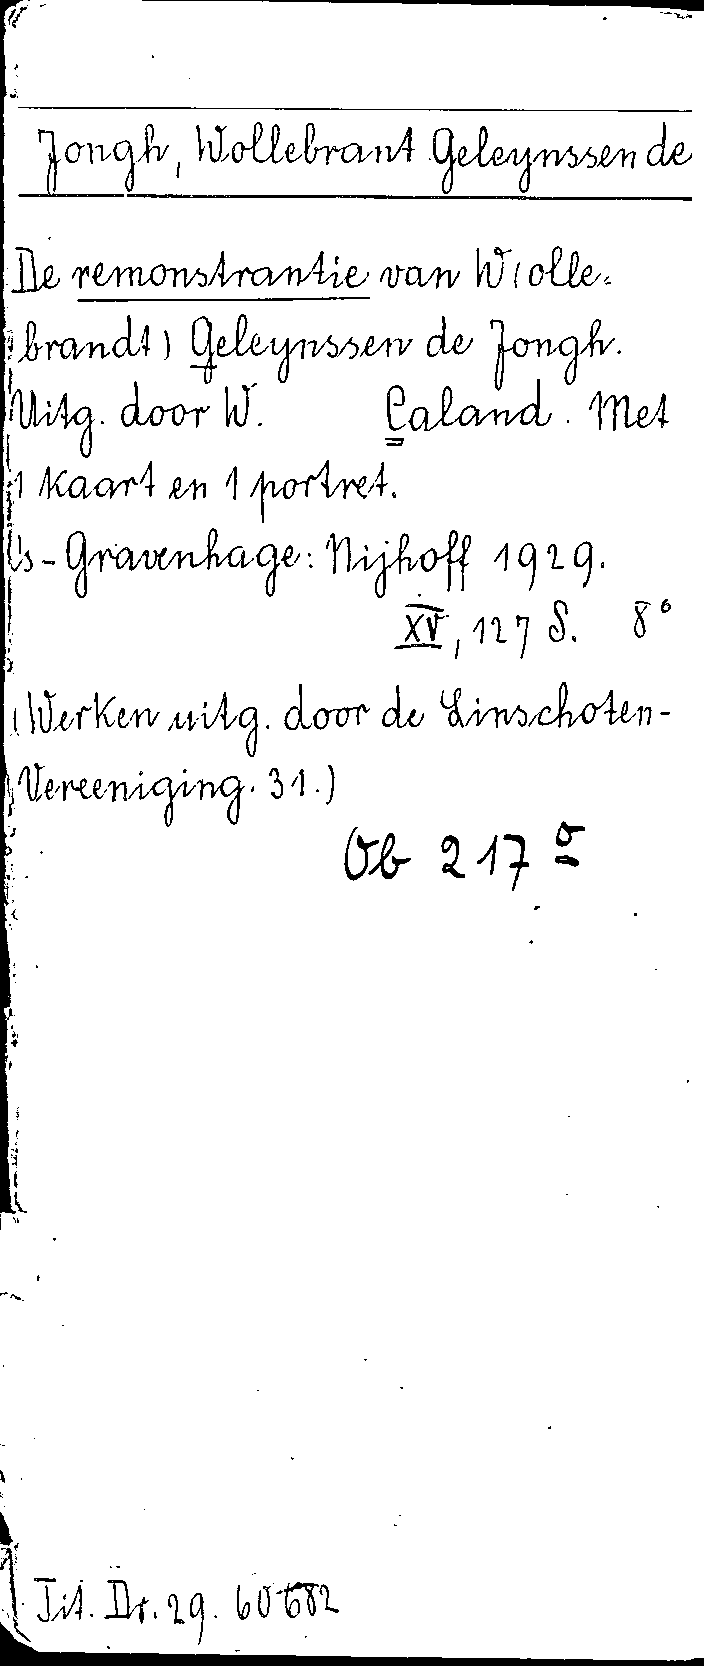 Jongh, Wollebrant Geleynssen de
De remonstrantie van W(olle-
brandt) Geleynssen de Jongh.
Uitg. door W. Caland. Met
1 Kaart en 1 portret.
's-Gravenhage: Nijhoff 1929.
XV, 127 S. 8°
(Werken uitg. door de Linschoten-
Vereeniging. 31.)
Ob 217
Tit. Dr. 29. 60682